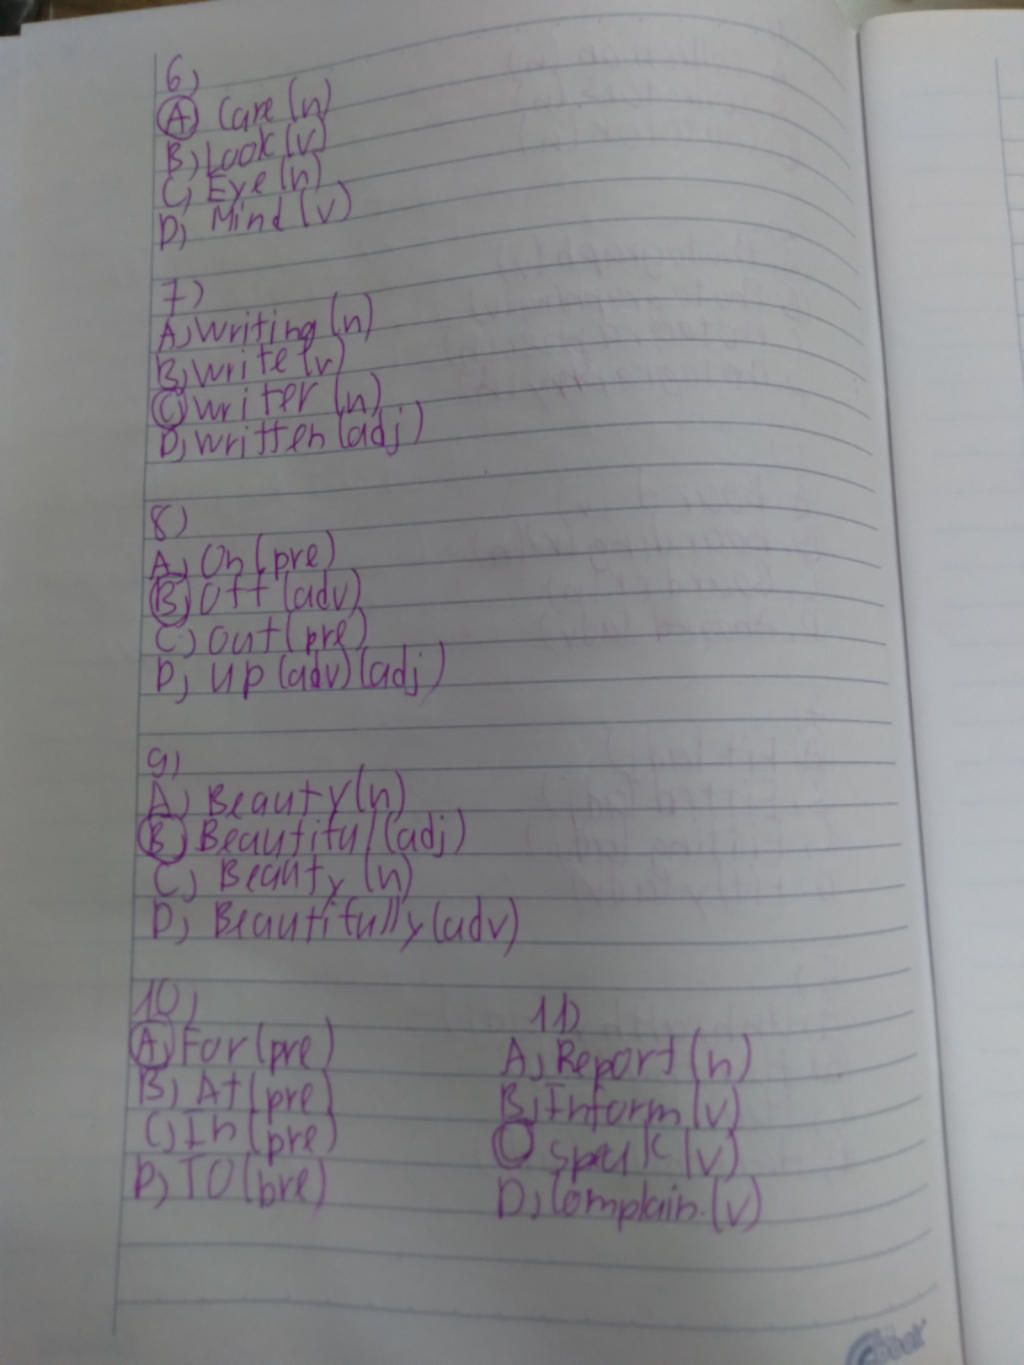 6)
A) Care (n)
B) Look (v)
C) Eye (n)
D) Mind (v)
7)
A) Writing (n)
B) Write (v)
C) Writer (n)
D) Written (adj)
8)
A) On (pre)
B) Off (adv)
C) Out (pre)
D) Up (adv) (adj)
9)
A) Beauty (n)
B) Beautiful (adj)
C) Beauty (n)
D) Beautifully (adv)
10)
A) For (pre)
B) At (pre)
C) In (pre)
D) TO (pre)
11)
A) Report (n)
B) Inform (v)
C) Speak (v)
D) Complain (v)